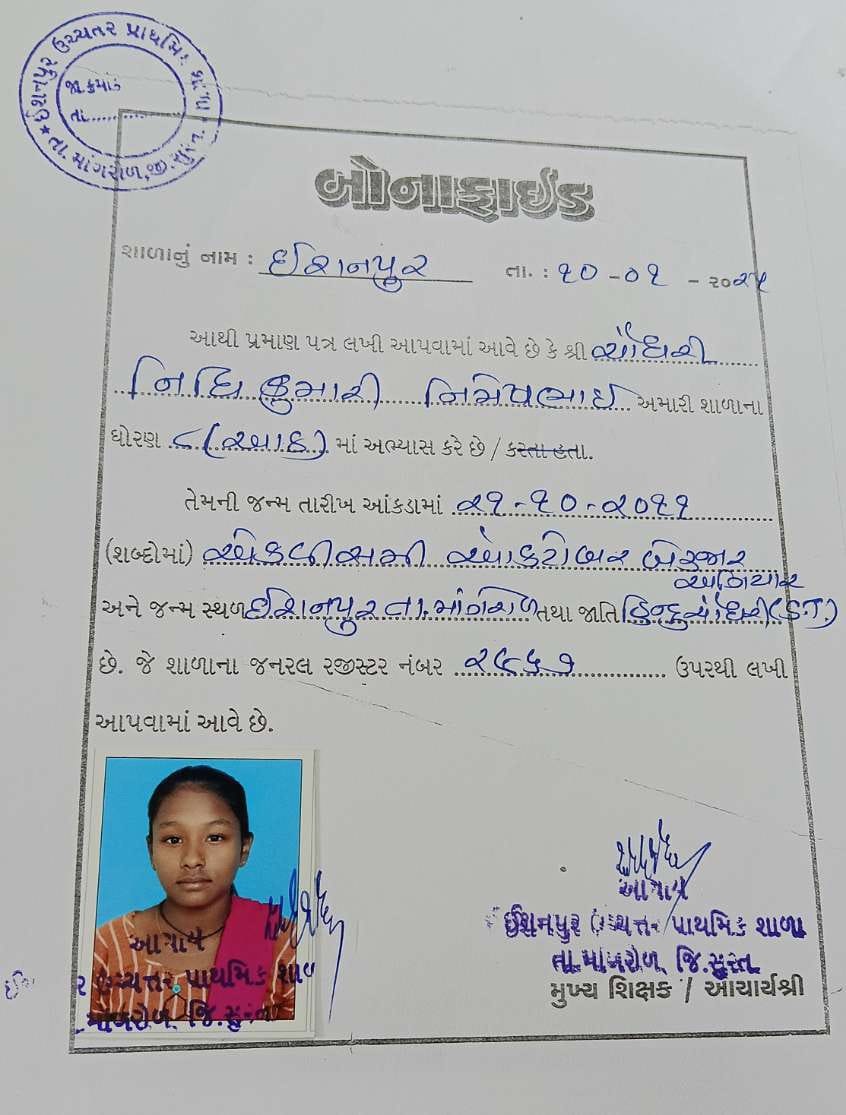 ઈશનપુર ઉચ્ચતર પ્રાથમિક શાળા
જા.ક્રમાંક
તા..........
★ તા.માંગરોળ,જી.સુરત
બોનાફાઈડ
શાળાનું નામ : ઈશનપુર તા. : ૧૦ -૦૧ - ૨૦૨૫
આથી પ્રમાણ પત્ર લખી આપવામાં આવે છે કે શ્રી ચૌધરી
નિધિકુમારી નિમેષભાઈ અમારી શાળાના
ધોરણ ૮ (આઠ) માં અભ્યાસ કરે છે / કરતા હતા.
તેમની જન્મ તારીખ આંકડામાં ૨૧-૧૦-૨૦૧૧
(શબ્દોમાં) એકવીસમી ઓકટોબર બે હજાર
અગિયાર
અને જન્મ સ્થળ ઈશનપુર તા.માંગરોળ તથા જાતિ હિન્દુ ચૌધરી (S.T.)
છે. જે શાળાના જનરલ રજીસ્ટર નંબર ઉપરથી લખી
આપવામાં આવે છે.
આચાર્ય
ઈશનપુર ઉચ્ચત્તર પ્રાથમિક શાળા
તા.માંગરોળ, જિ.સુરત
મુખ્ય શિક્ષક / આચાર્યશ્રી
આચાર્ય
ઉચ્ચત્તર પ્રાથમિક શાળ
માંગરોળ, જિ.સુરત